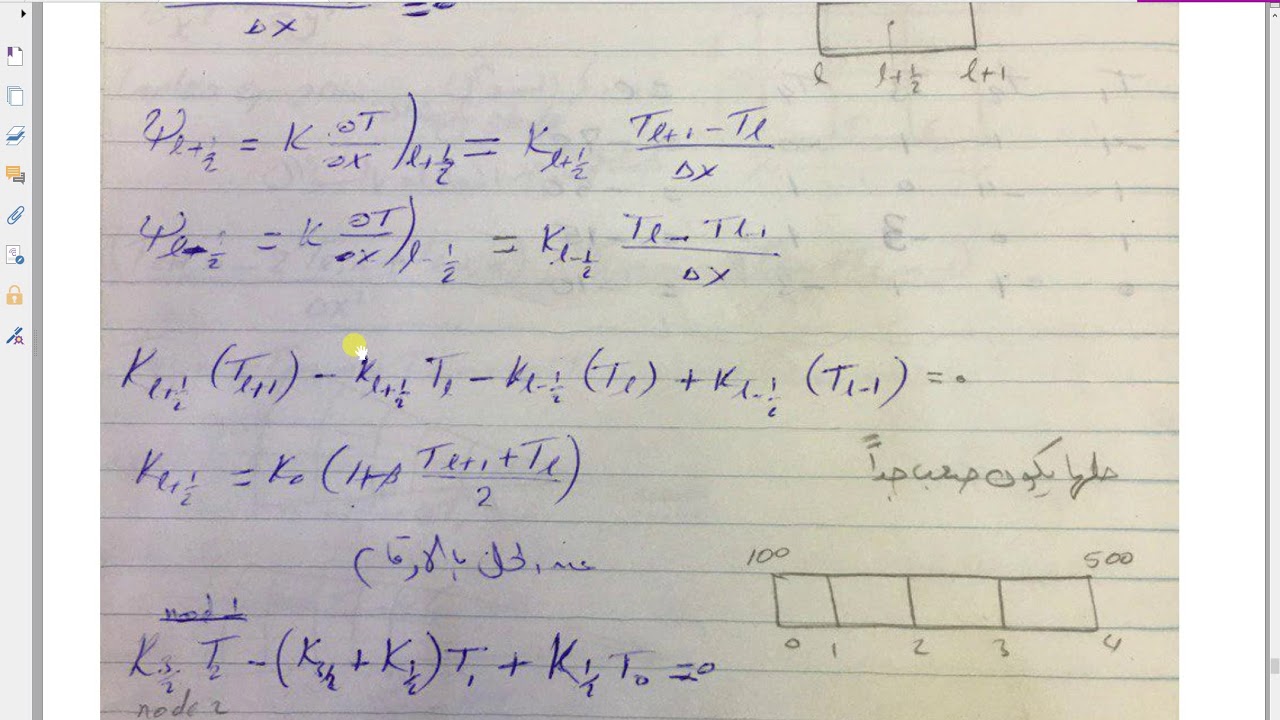 ΔX = 0
l l+1/2 l+1
Ψ_{l+1/2} = K ∂T/∂X )_{l+1/2} = K_{l+1/2} (T_{l+1} - T_l)/ΔX
Ψ_{l-1/2} = K ∂T/∂X )_{l-1/2} = K_{l-1/2} (T_l - T_{l-1})/ΔX
K_{l+1/2} (T_{l+1}) - K_{l+1/2} T_l - K_{l-1/2} (T_l) + K_{l-1/2} (T_{l-1}) = 0
حلها يكون صعب جداً
K_{l+1/2} = K_0 (1+β (T_{l+1} + T_l)/2)
عند الحل بالارقام
100 500
0 1 2 3 4
nod 1
K_{3/2} T_2 - (K_{3/2} + K_{1/2}) T_1 + K_{1/2} T_0 = 0
node 2